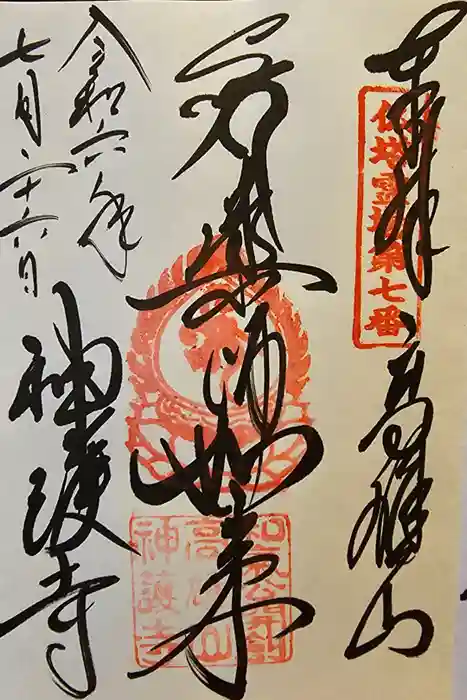 奉拝 高雄山
霊場第七番
薬師如来
令和六年
七月二十六日
神護寺
高雄山
神護寺